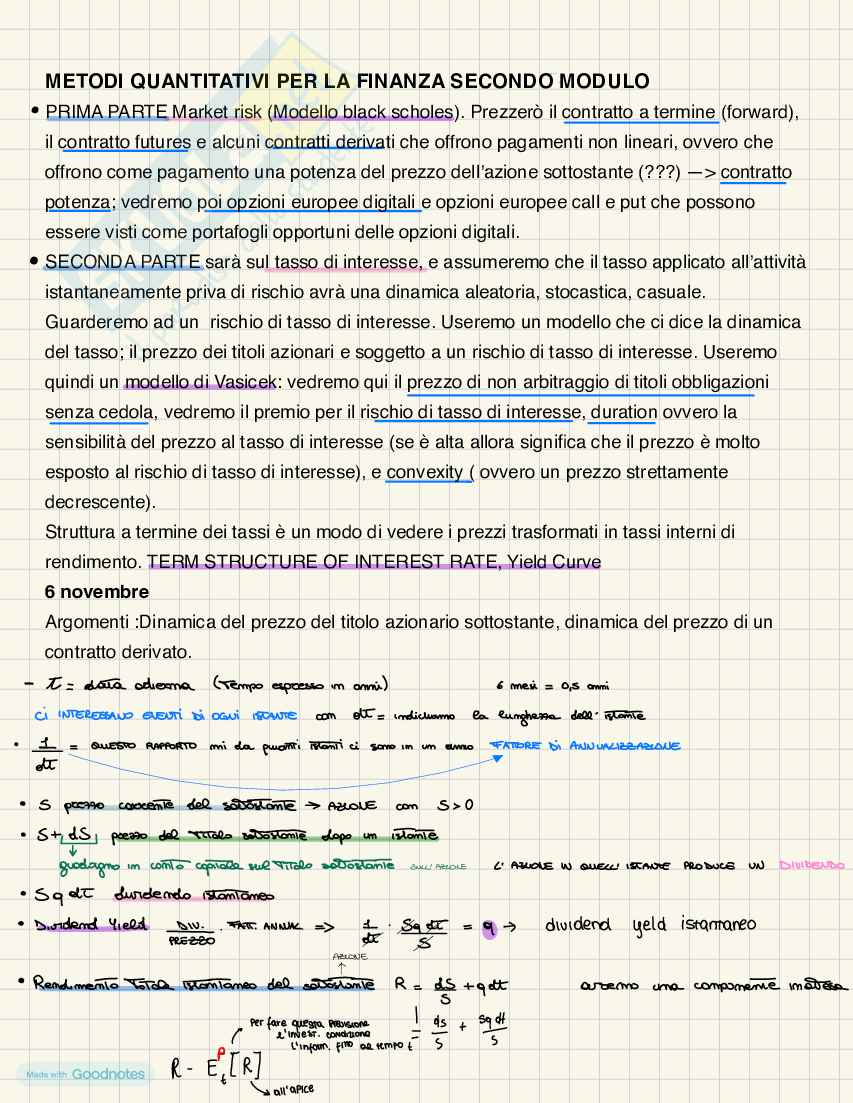 METODI QUANTITATIVI PER LA FINANZA SECONDO MODULO
• PRIMA PARTE Market risk (Modello black scholes). Prezzerò il contratto a termine (forward),
il contratto futures e alcuni contratti derivati che offrono pagamenti non lineari, ovvero che
offrono come pagamento una potenza del prezzo dell'azione sottostante (???) —> contratto
potenza; vedremo poi opzioni europee digitali e opzioni europee call e put che possono
essere visti come portafogli opportuni delle opzioni digitali.
• SECONDA PARTE sarà sul tasso di interesse, e assumeremo che il tasso applicato all'attività
istantaneamente priva di rischio avrà una dinamica aleatoria, stocastica, casuale.
Guarderemo ad un rischio di tasso di interesse. Useremo un modello che ci dice la dinamica
del tasso; il prezzo dei titoli azionari e soggetto a un rischio di tasso di interesse. Useremo
quindi un modello di Vasicek: vedremo qui il prezzo di non arbitraggio di titoli obbligazioni
senza cedola, vedremo il premio per il rischio di tasso di interesse, duration ovvero la
sensibilità del prezzo al tasso di interesse (se è alta allora significa che il prezzo è molto
esposto al rischio di tasso di interesse), e convexity ( ovvero un prezzo strettamente
decrescente).
Struttura a termine dei tassi è un modo di vedere i prezzi trasformati in tassi interni di
rendimento. TERM STRUCTURE OF INTEREST RATE, Yield Curve
6 novembre
Argomenti :Dinamica del prezzo del titolo azionario sottostante, dinamica del prezzo di un
contratto derivato.
- t = data odierna (Tempo espresso in anni) 6 mesi = 0,5 anni
CI INTERESSANO EVENTI DI OGNI ISTANTE con dt = indichiamo la lunghezza dell' istante
• 1/dt = QUESTO RAPPORTO mi da quanti istanti ci sono in un anno FATTORE DI ANNUALIZZAZIONE
• S prezzo corrente del sottostante → AZIONE con S>0
• S+dS prezzo del titolo sottostante dopo un istante
guadagno in conto capitale sul titolo sottostante SULL'AZIONE L'AZIONE IN QUELL'ISTANTE PRODUCE UN DIVIDENDO
• Sqdt dividendo istantaneo
• Dividend Yield DIV./PREZZO · FATT. ANNUAL => 1/dt · Sqdt/S = q → dividend yeld istantaneo
AZIONE
• Rendimento totale istantaneo del sottostante R = dS/S + qdt avremo una componente inattesa
= ds/S + sqdt/S
Per fare questa PREVISIONE
l'invest. condiziona
l'inform. fino al tempo t
R - E_t^P[R]
all'apice
Made with Goodnotes